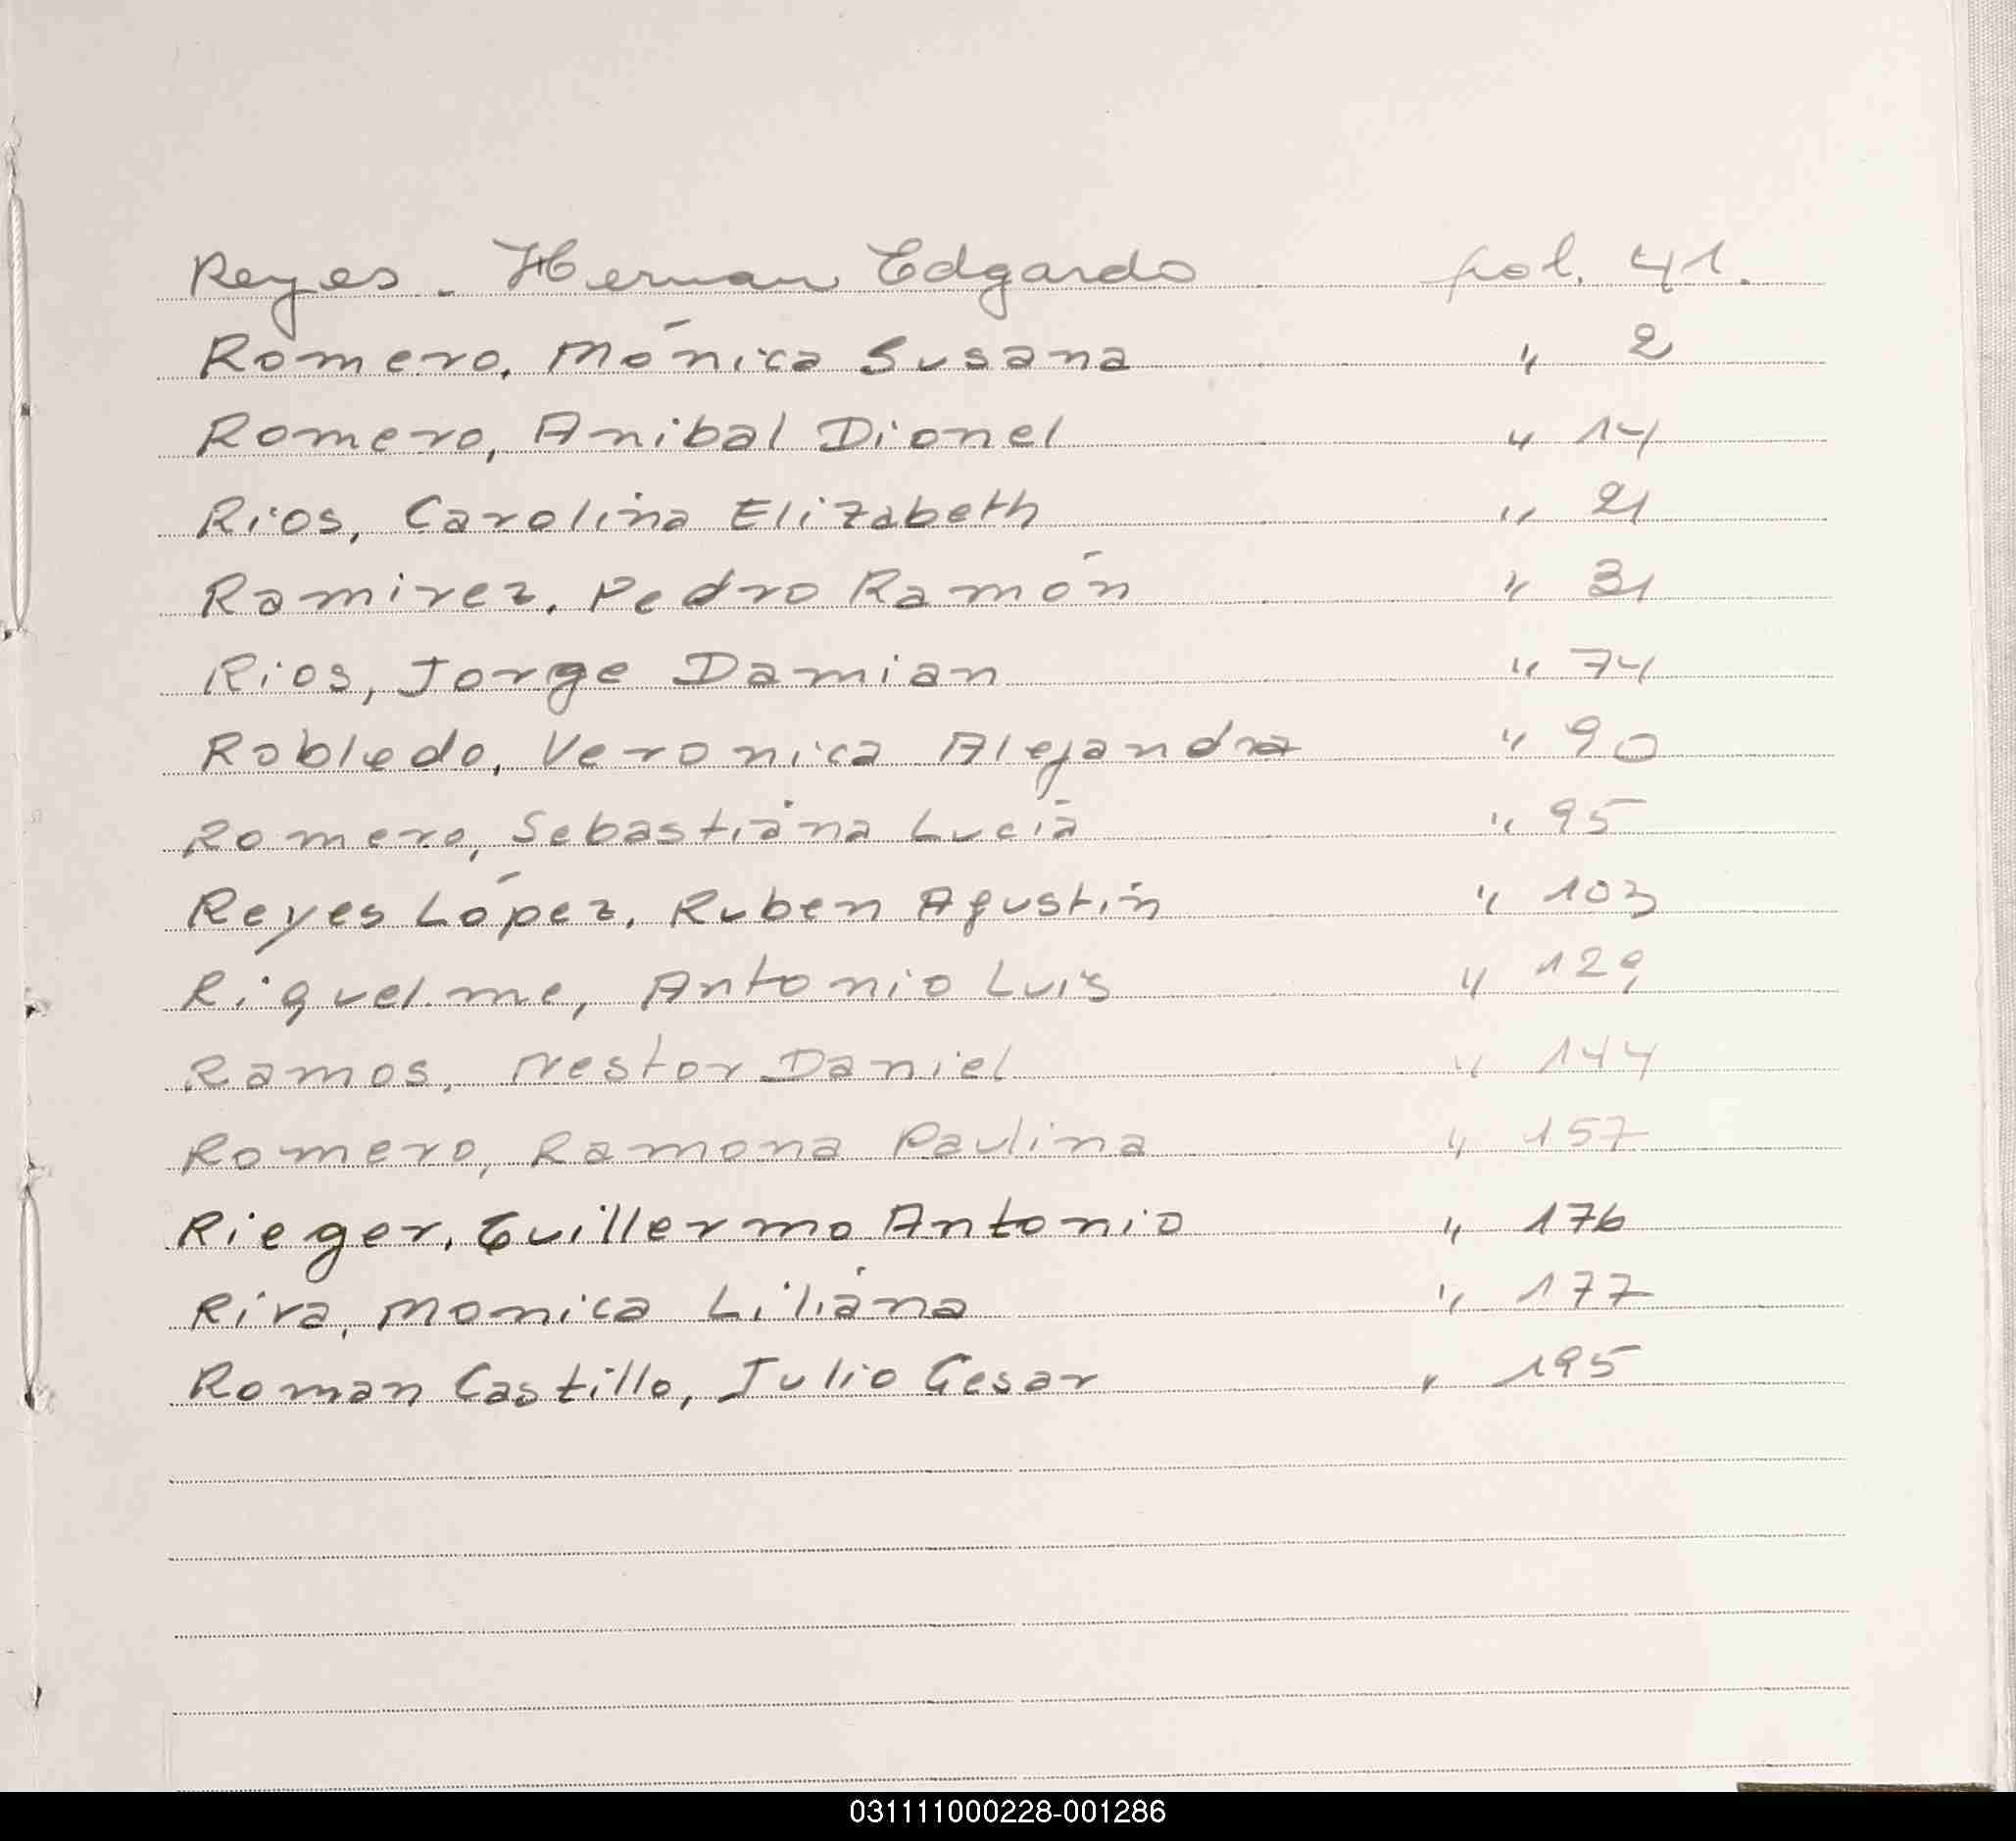 Reyes. Hernan Edgardo fol. 41.
Romero, Mónica Susana " 2
Romero, Anibal Dionel " 14
Rios, Carolina Elizabeth " 21
Ramirez, Pedro Ramón " 31
Rios, Jorge Damian " 74
Robledo, Veronica Alejandra " 90
Romero, Sebastiana Lucia " 95
Reyes López, Ruben Agustin " 103
Riquelme, Antonio Luis " 129
Ramos, Nestor Daniel " 144
Romero, Ramona Paulina " 157
Rieger, Guillermo Antonio " 176
Riva, Monica Liliana " 177
Roman Castillo, Julio Cesar " 195
031111000228-001286